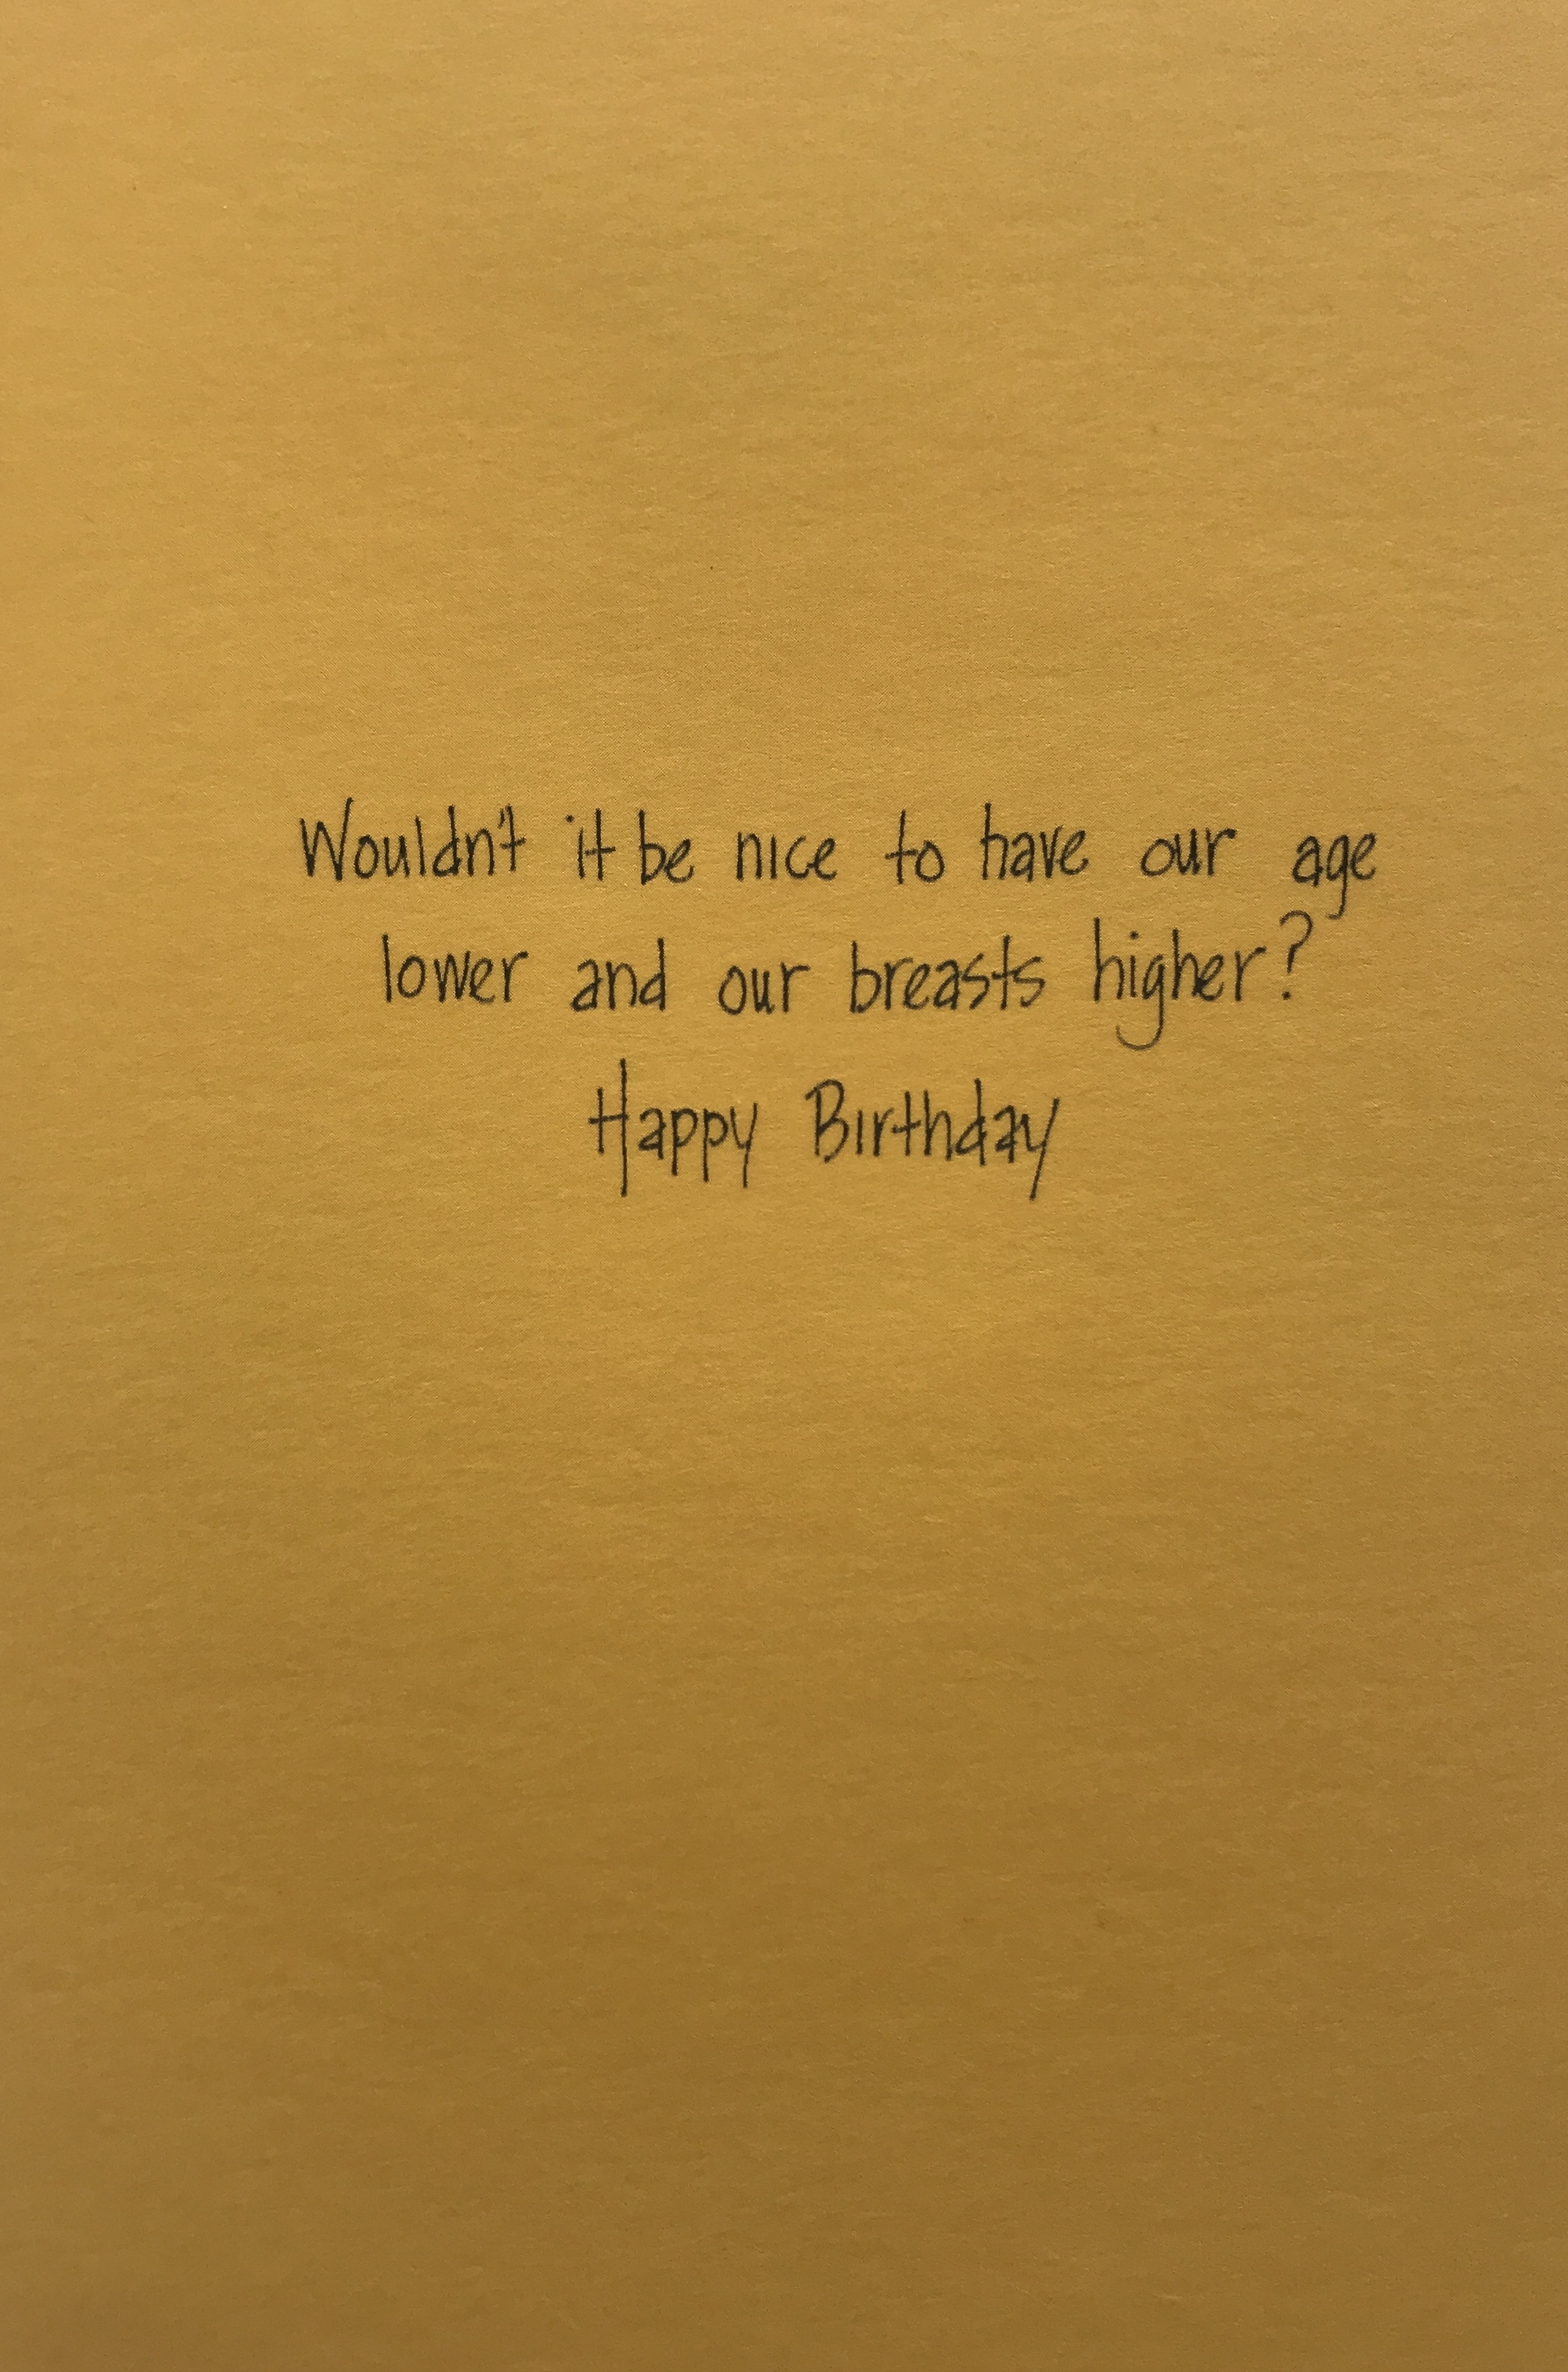 Wouldn't it be nice to have our age
lower and our breasts higher?
Happy Birthday